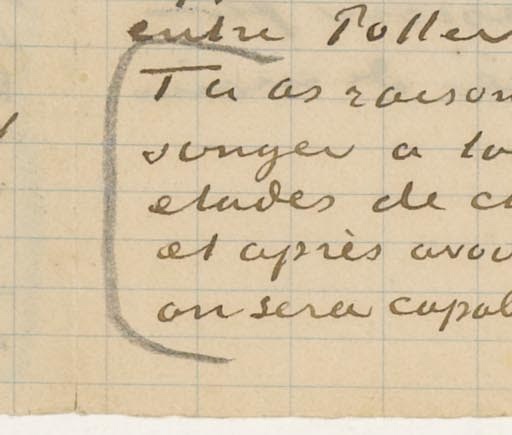 entre Potter
Tu as raison
songer a to
etudes de c
et après avoi
on sera capab